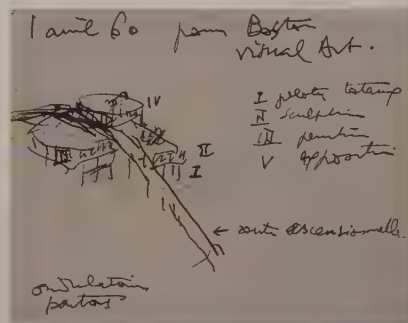 1 avril 60 pour Boston
visual Art.
IV
I pilotis
II sculpture
III peinture
V exposition
III
II
I
← route ascensionnelle.
ondulatoires
partout